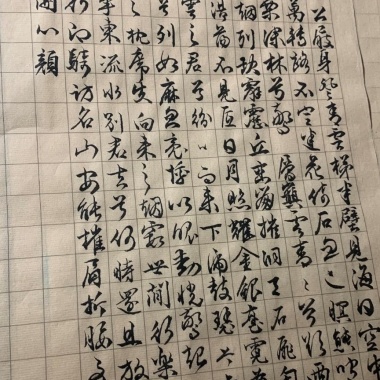 公屐身登青雲梯半壁見海日空中
萬轉路不定迷花倚石忽已暝熊咆
栗深林兮驚層巔雲青青兮欲雨
烟列缺霹靂丘巒崩摧洞天石扉訇
浩蕩不見底日月照耀金銀臺霓為
雲之君兮紛紛而來下虎鼓瑟兮
兮列如麻忽魂悸以魄動恍驚起
之枕席失向來之烟霞世間行樂
事東流水別君去兮何時還且放
行即騎訪名山安能摧眉折腰事
開心顏